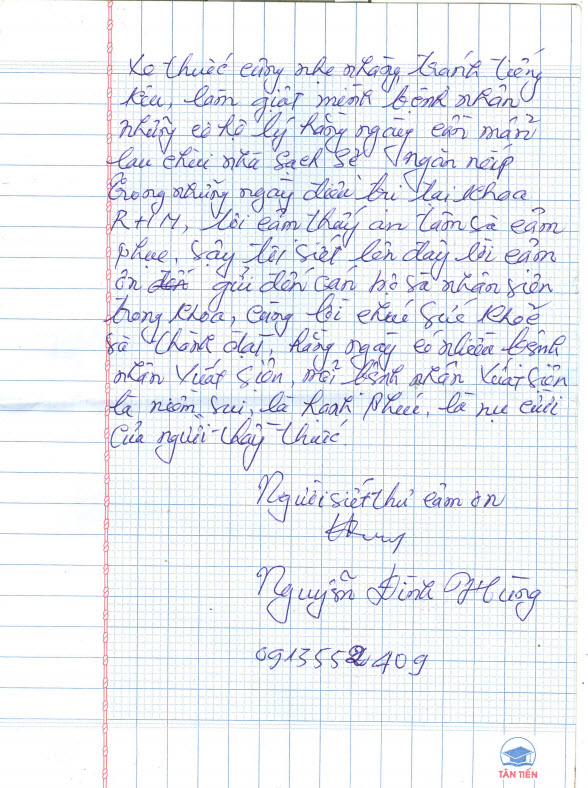 xe thuốc cũng nhẹ nhàng, tránh tiếng
kêu, làm giật mình bệnh nhân
những cô hộ lý hằng ngày cần mẫn
lau chùi nhà sạch sẽ ngăn nắp
Trong những ngày điều trị tại khoa
RHM, tôi cảm thấy an tâm sà cảm
phục, sậy tôi siết lên đây lời cảm
ơn gửi đến cán bộ sà nhân siên
trong khoa, cùng lời chúc sức khoẻ
sà thành đạt, hằng ngày có nhiều bệnh
nhân xuất siện, mỗi bệnh nhân xuất siện
là niềm sui, là hạnh phúc, là nụ cười
của người thầy thuốc
Người siết thư cảm ơn
Nguyễn Đình Hùng
0913552409
TÂN TIẾN